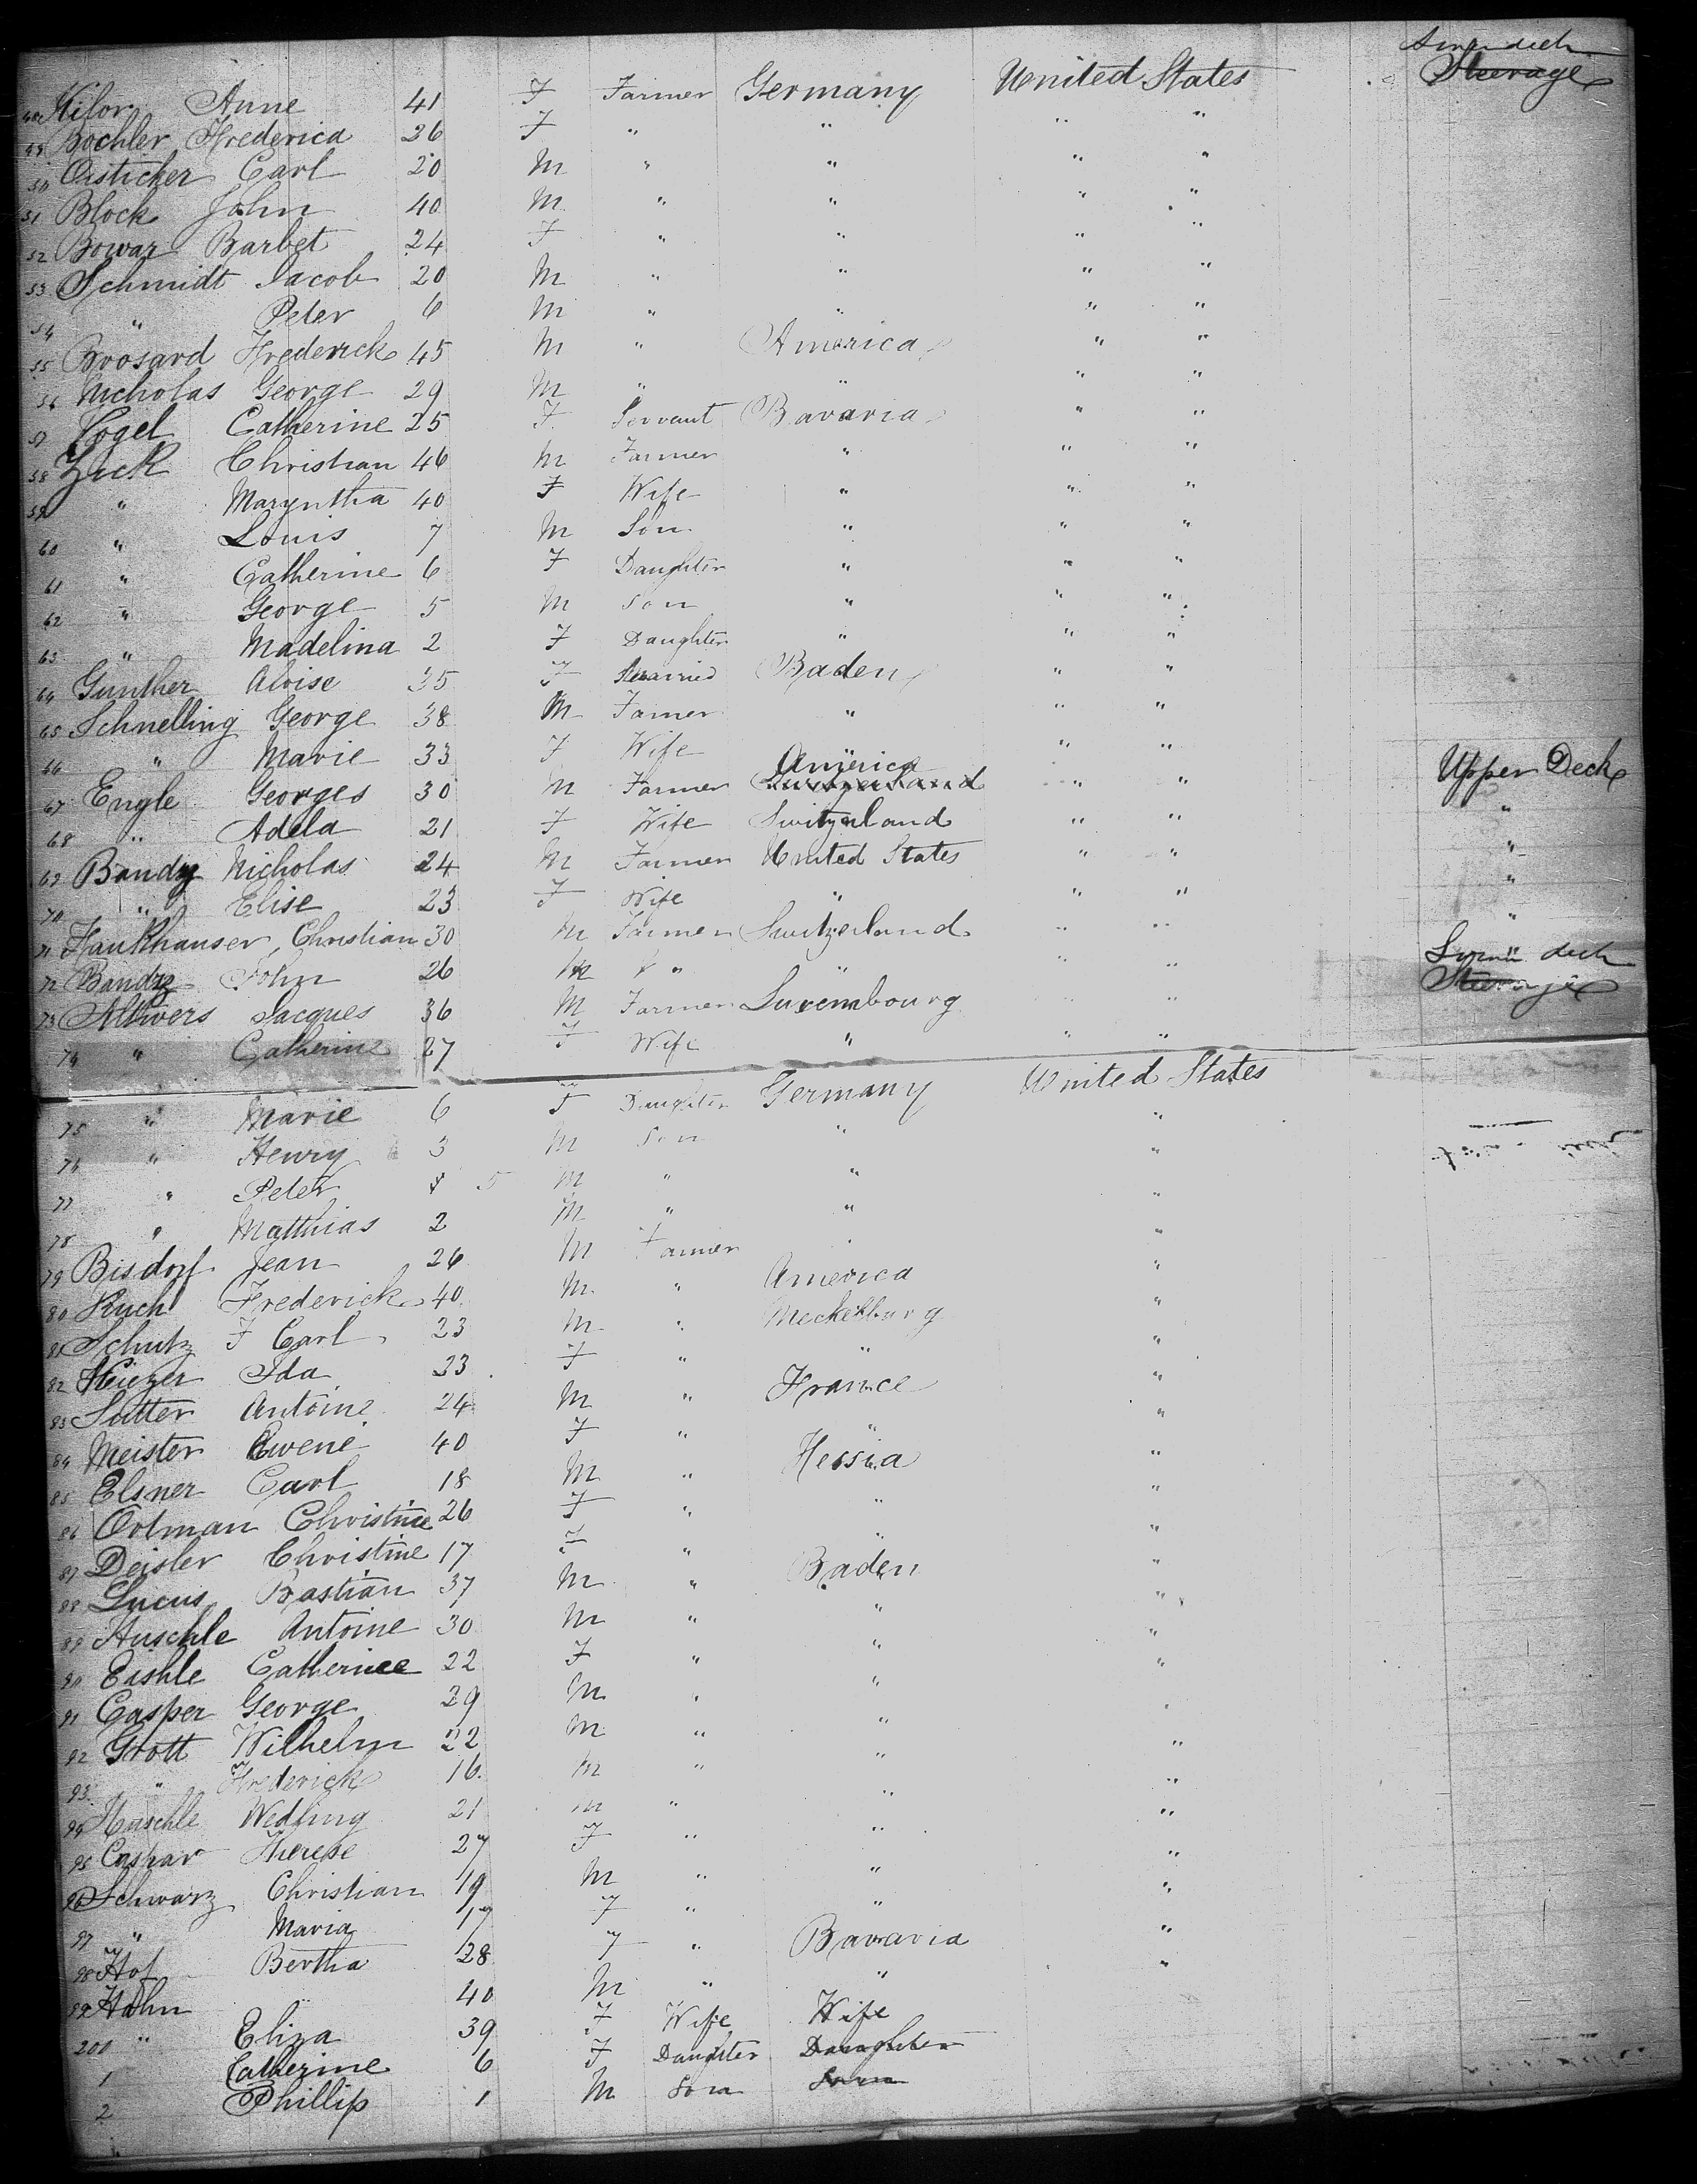 Steerage
Anne 41 F Farmer Germany United States
49 Bochler Frederica 26 F " " " "
50 Oisticker Carl 20 M " " " "
51 Block John 40 M " " " "
52 Bowar Barbet 24 F " " " "
53 Schmidt Jacob 20 M " " " "
54 " Peter 6 M " " " "
55 Broosard Frederick 45 M " America " "
56 Nicholas George 29 M " " " "
57 Vogel Catherine 25 F Servant Bavaria " "
58 Zick Christian 46 M Farmer " " "
59 " Maryntha 40 F Wife " " "
60 " Louis 7 M Son " " "
61 " Catherine 6 F Daughter " " "
62 " George 5 M Son " " "
63 " Madelina 2 F Daughter " " "
64 Gunther Aloise 35 F Baden " "
65 Schnelling George 38 M Farmer " " "
66 " Marie 33 F Wife " " "
67 Engle Georges 30 M Farmer America " " Upper Deck
68 " Adela 21 F Wife Switzerland " " "
69 Bandy Nicholas 24 M Farmer United States " " "
70 " Elise 23 F Wife " " " "
71 Hankhauser Christian 30 M Farmer Switzerland " " "
72 Bandz John 26 M " " " " deck
73 Jacques 36 M Farmer Luxembourg " " Steerage
74 " Catherine 27 F Wife " " "
75 " Marie 6 F Daughter Germany United States
76 " Henry 3 M Son " "
77 " Peter 5 M " " "
78 " Matthias 2 M " " "
79 Bisdorf Jean 26 M Farmer " "
80 Ruch Frederick 40 M " America "
81 Schutz F Carl 23 M " Mecklburg "
82 Ida 23 F " " "
83 Sutter Antoine 24 M " France "
84 Meister 40 F " " "
85 Elsner Carl 18 M " Hessia "
86 Ortman Christine 26 F " " "
87 Deisler Christine 17 F " " "
88 Lucus Bastian 37 M " Baden "
89 Huschle Antoine 30 M " " "
90 Eishle Catherine 22 F " " "
91 Casper George 29 M " " "
92 Grott Wilhelm 22 M " " "
93 " Frederick 16 M " " "
94 Huschle Wedling 21 M " " "
95 Caspar Therese 27 F " " "
96 Schwarz Christian 19 M " " "
97 " Maria 17 F " " "
98 Hof Bertha 28 F " Bavaria "
99 Hahn 40 M " " "
200 " Eliza 39 F Wife Wife
1 Catherine 6 F Daughter Daughter
2 Phillip 1 M Son Son